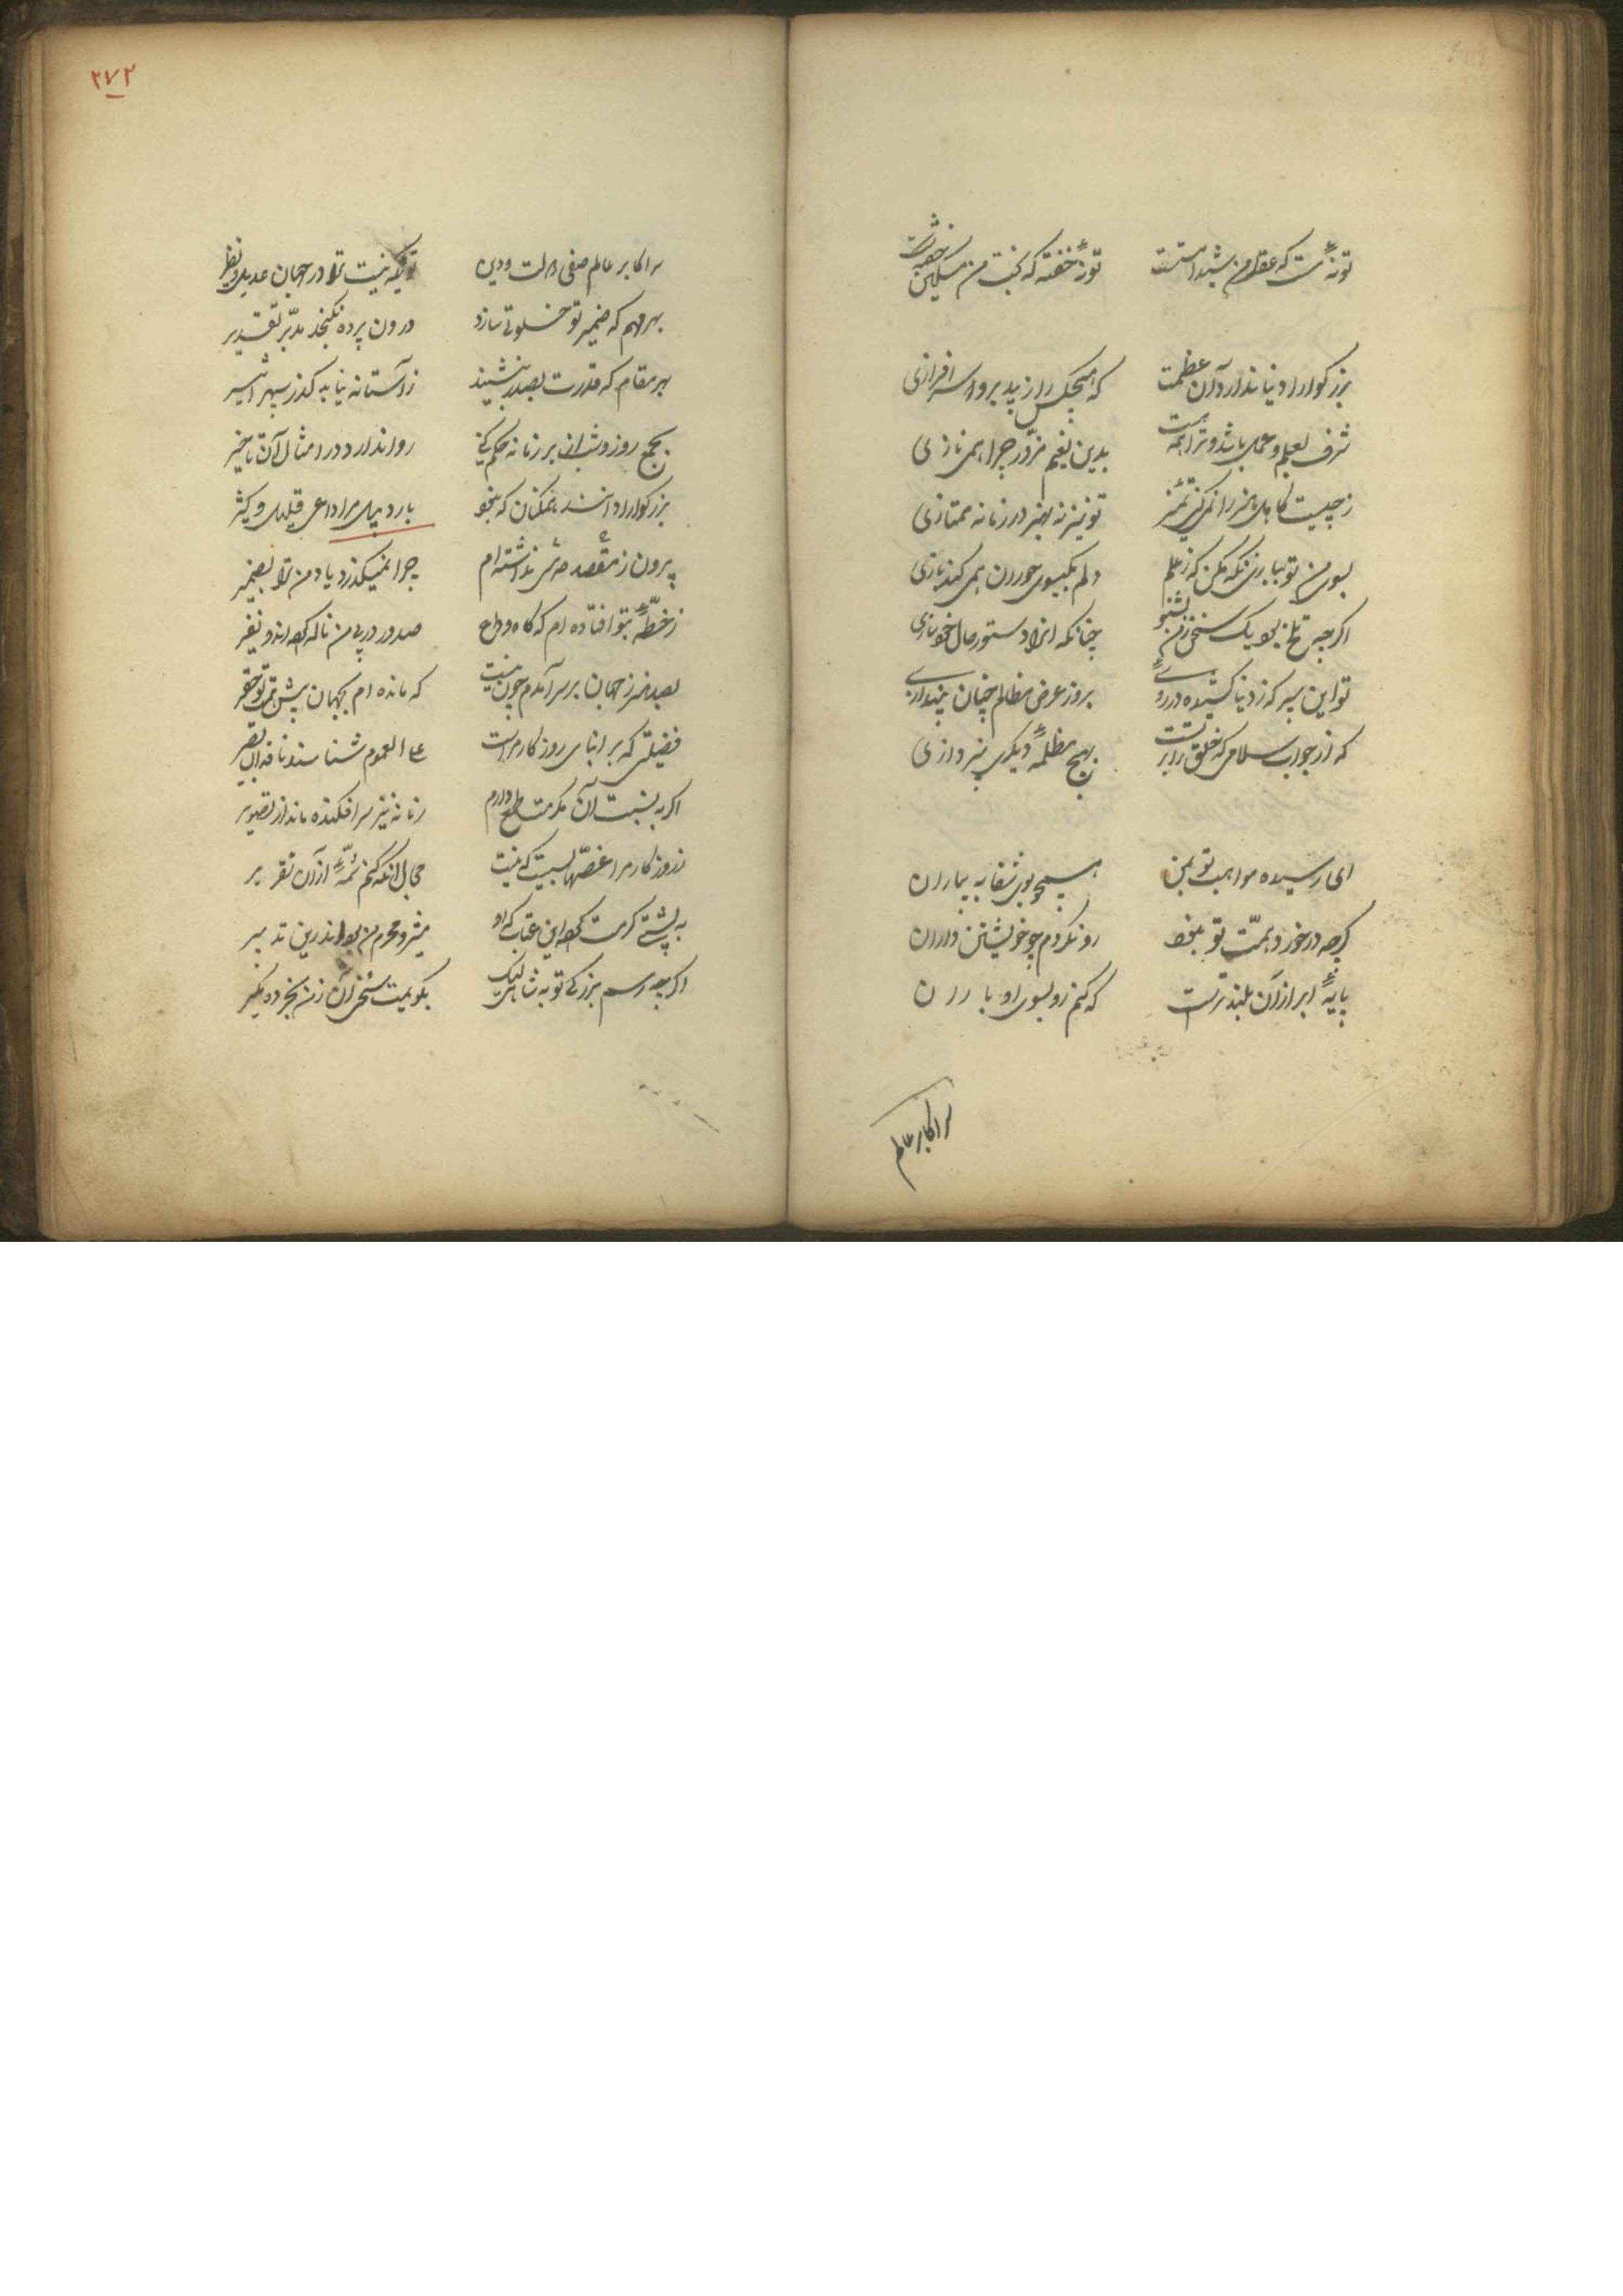 تو نهٔ مست که عقل من شیدا مستست
تو نهٔ خفته که بخت من مسکین خفتست
بزرکوارا دنیا ندارد آن عظمت
که هیچکس را زیبد برو سرافرازی
شرف بعلم و عمل باشد و ترا همه هست
بدین نعیم مزور چرا همی نازی
ز چیست کاهل هنر را نمی کنی تمییز
تو نیز نه بهنر در زمانه ممتازی
بسوی من تو ببازی نکه مکن که ز علم
دلم بکیسوی حوران همی کند بازی
اکر چه تلخ بود یک سخن ز من بشنو
چنانکه آنرا دستور حال خود سازی
تو این سپر که ز دنیا کشیدهٔ در روی
بروز عرض مظالم چنان بیندازی
که از جواب سلامی که خلق را بر تست
بهیچ مظلمهٔ دیکری نپردازی
ای رسیده مواهب تو بمن
همچو بوی شفا به بیماران
کرچه در خورد همت تو نبود
رد نکردم چو خویشتن داران
پایهٔ ابر از آن بلندترست
که کنم رو بسوی او باران
سر اکابر عالم
۲۷۲
سر اکابر عالم صفی دولت و دین
توئیکه نیست ترا در جهان عدیل و نظیر
بهر مهم که ضمیر تو خلوتی سازد
درون پرده نکنجد مدبر تقدیر
بهر مقام که قدرت بصدر بنشیند
ز آستانه نیابد کذر سپهر اثیر
بجمع روز و شب ار بر زمانه حکم کنی
روا ندارد در امتثال آن تاخیر
بزرکوارا دانند همکنان که نبود
بارد بیل مرا داعی قلیل و کثیر
برون ز مقصد صدرش نداشته ام
چرا نمیکذرد یاد من ترا بضمیر
ز خطهٔ بتو افتاده ام که کاه وداع
صدور در پی من ناله کرده اند و نفیر
بصد هنر ز جهان بر سر آمدم چون نیست
که مانده ام بجهان پیش همت تو حقیر
فضیلتی که بر ابنای روزکار مراست
علی العموم شناسند ناقدان بصیر
اکر به نسبت آن مکرمت طمع دارم
زمانه نیز سرافکنده ماند از تصویر
ز روزکار مرا غصهاست کی نیست
مجال آنکه کنم شمهٔ از آن تقریر
به پشتی کرمت کرده این عتاب که او
مشیر و محرم من بود اندرین تدبیر
اکرچه رسم بزرکی تو به شناسی لیک
بکویمت سخنی آن ز من بخرده مکیر